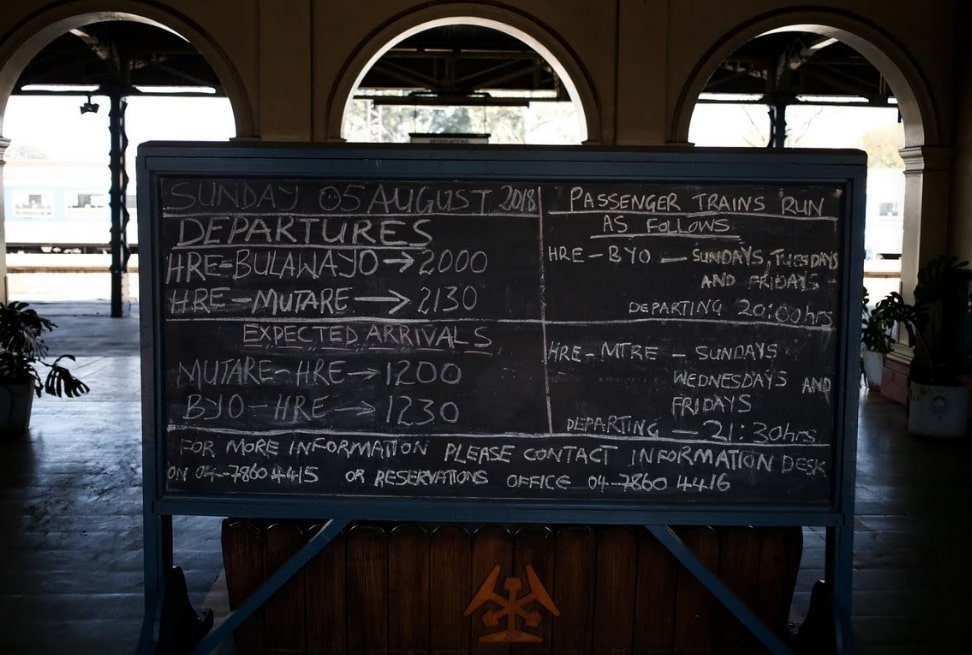 SUNDAY 05 AUGUST 2018
DEPARTURES
HRE-BULAWAYO → 2000
HRE-MUTARE → 2130
EXPECTED ARRIVALS
MUTARE-HRE → 1200
BYO-HRE → 1230
PASSENGER TRAINS RUN
AS FOLLOWS
HRE-BYO - SUNDAYS, TUESDAYS
AND FRIDAYS
DEPARTING 20:00hrs
HRE-MTRE - SUNDAYS
WEDNESDAYS AND
FRIDAYS
DEPARTING - 21:30hrs
FOR MORE INFORMATION PLEASE CONTACT INFORMATION DESK
ON 04-7860 4415 OR RESERVATIONS OFFICE 04-7860 4416